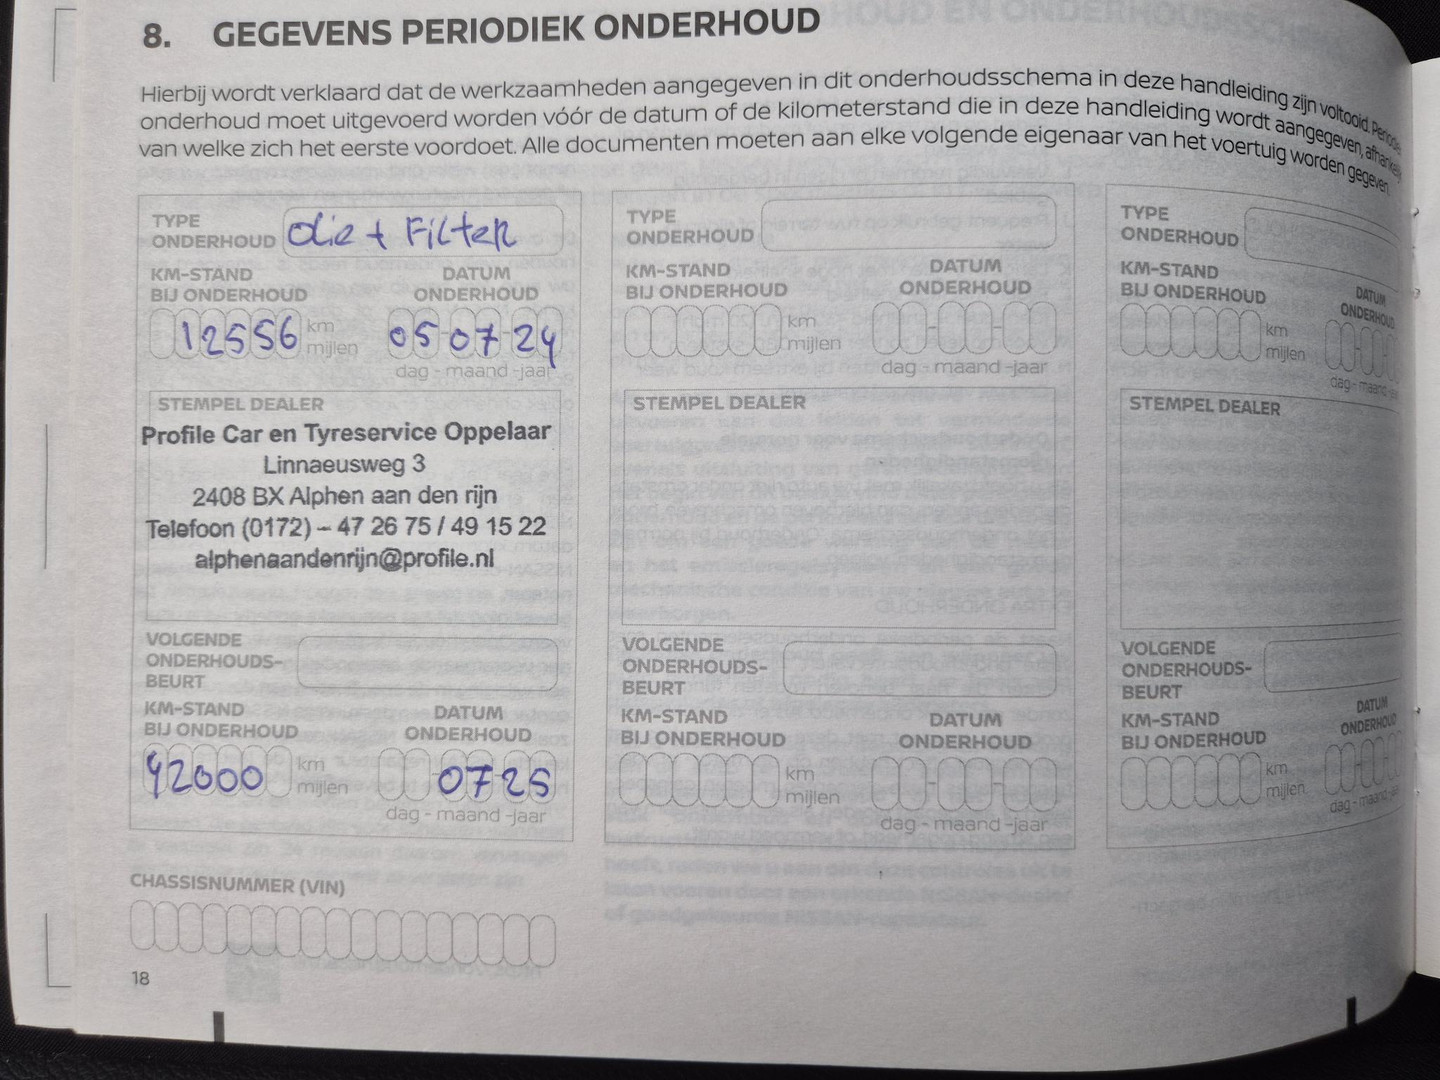 8. GEGEVENS PERIODIEK ONDERHOUD
Hierbij wordt verklaard dat de werkzaamheden aangegeven in dit onderhoudsschema in deze handleiding zijn voltooid.
onderhoud moet uitgevoerd worden vóór de datum of de kilometerstand die in deze handleiding wordt aangegeven,
van welke zich het eerste voordoet. Alle documenten moeten aan elke volgende eigenaar van het voertuig worden gegeven.
TYPE
ONDERHOUD
Olie + Filter
KM-STAND
BIJ ONDERHOUD
DATUM
ONDERHOUD
12556
km
mijlen
05-07-24
dag - maand -jaar
STEMPEL DEALER
Profile Car en Tyreservice Oppelaar
Linnaeusweg 3
2408 BX Alphen aan den rijn
Telefoon (0172) – 47 26 75 / 49 15 22
alphenaandenrijn@profile.nl
VOLGENDE
ONDERHOUDS-
BEURT
KM-STAND
BIJ ONDERHOUD
DATUM
ONDERHOUD
42000
km
mijlen
07 25
dag - maand -jaar
TYPE
ONDERHOUD
KM-STAND
BIJ ONDERHOUD
DATUM
ONDERHOUD
km
mijlen
dag - maand -jaar
STEMPEL DEALER
VOLGENDE
ONDERHOUDS-
BEURT
KM-STAND
BIJ ONDERHOUD
DATUM
ONDERHOUD
km
mijlen
dag - maand -jaar
TYPE
ONDERHOUD
KM-STAND
BIJ ONDERHOUD
DATUM
ONDERHOUD
km
mijlen
dag - maand
STEMPEL DEALER
VOLGENDE
ONDERHOUDS-
BEURT
KM-STAND
BIJ ONDERHOUD
DATUM
ONDERHOUD
km
mijlen
dag - maand
CHASSISNUMMER (VIN)
18